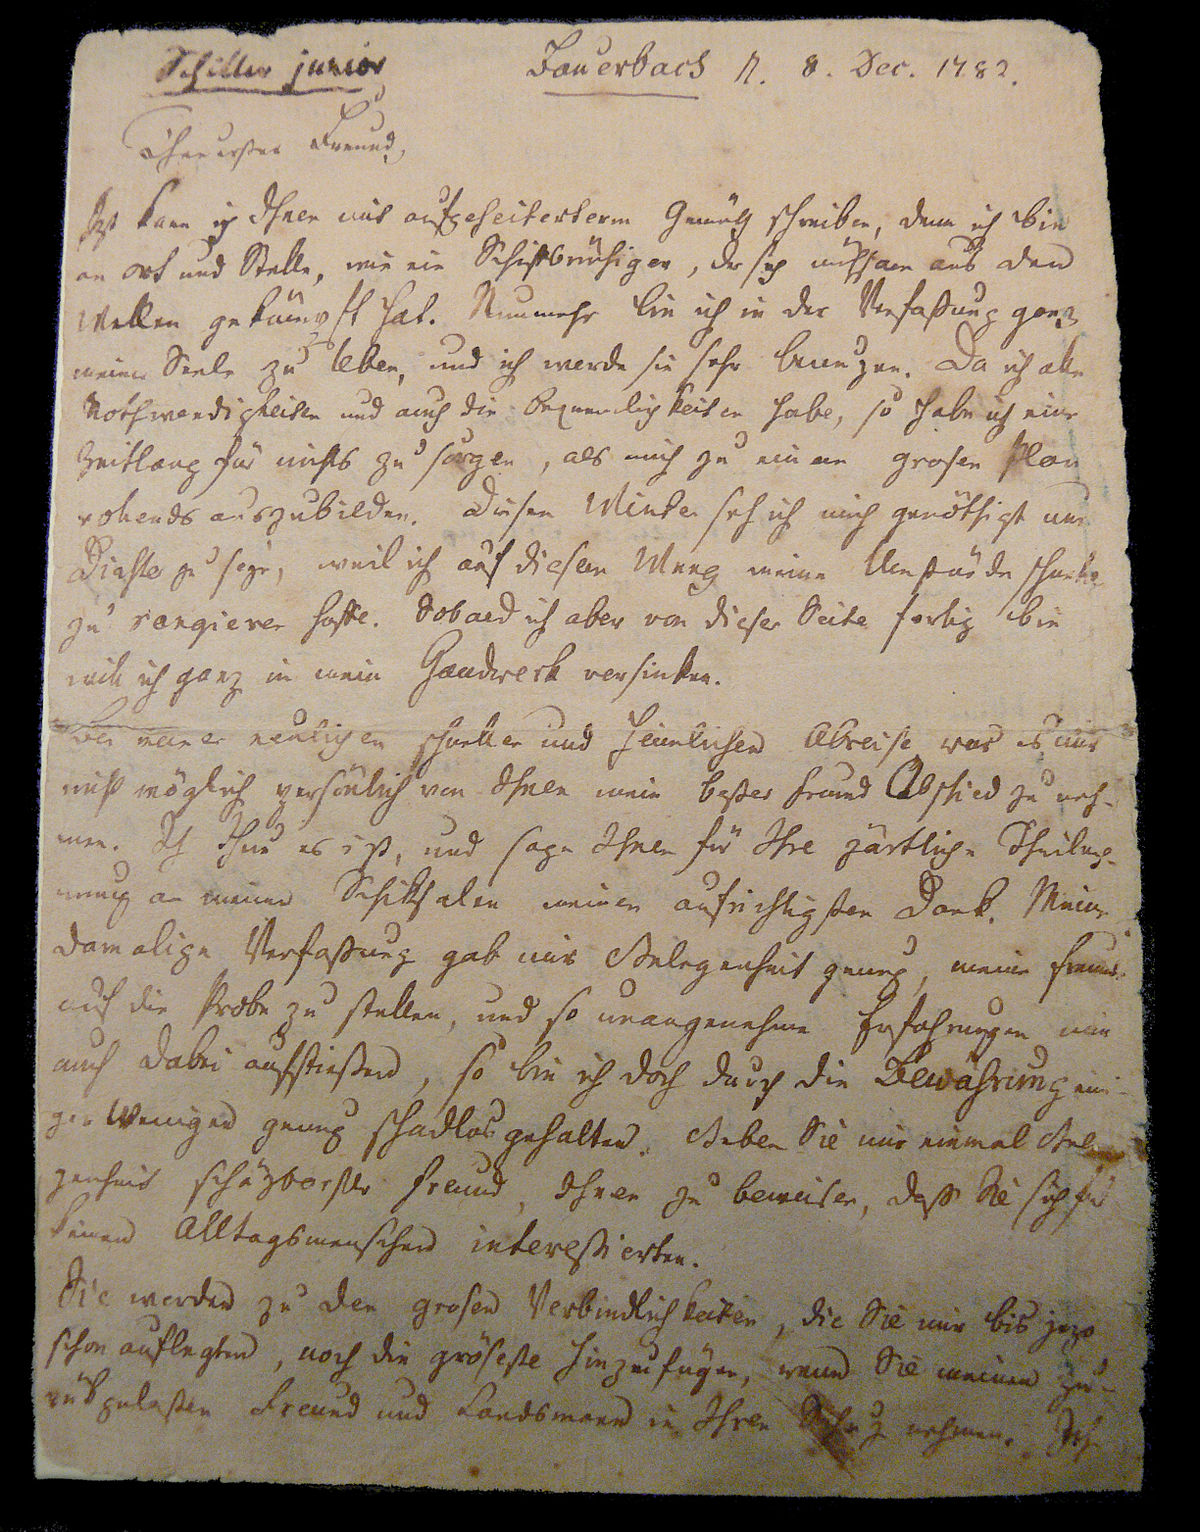 Schiller junior
Bauerbach H. 8. Dec. 1782.
Theurester Freund,
Izt kann ich Ihnen mit aufgeheiterterem Gemüth schreiben, denn ich bin
an Ort und Stelle, wie ein Schiffbrüchiger, der sich mühsam aus den
Wellen gekämpft hat. Nunmehr bin ich in der Verfaßung ganz
meiner Seele zu leben, und ich werde sie sehr benuzen. Da ich alle
Nothwendigkeiten und auch die Bequemlichkeiten habe, so habe ich eine
Zeitlang für nichts zu sorgen, als mich zu einem grosen Plan
vollends auszubilden. Diesen Winter seh ich mich genöthigt nur
Dichter zu seyn, weil ich auf diesem Weeg meine Umstände schneller
zu rangieren hoffe. Sobald ich aber von dieser Seite fertig bin
will ich ganz in mein Handwerk versinken.
Bei meiner neulichen schnellen und heimlichen Abreise war es mir
nicht möglich persönlich von Ihnen mein bester Freund Abschied zu neh-
men. Ich thue es izt, und sage Ihnen für Ihre zärtliche Theilneh-
mung an meinen Schiksalen meinen aufrichtigsten Dank. Meine
damalige Verfaßung gab mir Gelegenheit genug, meine Freunde
auf die Probe zu stellen, und so unangenehme Erfahrungen mir
auch dabei aufstießen, so bin ich doch durch die Bewährung eini-
ger Weniger genug schadlos gehalten. Geben Sie mir einmal Gele
genheit schäzbarster Freund, Ihnen zu beweisen, daß Sie sich für
keinen Alltagsmenschen interessierten.
Sie werden zu den grosen Verbindlichkeiten, die Sie mir bis jezo
schon auflegten, noch die gröseste hinzufügen, wenn Sie meinen zu-
rükgelaßen Freund und Landsmann in Ihren Schuz nehmen. Ich